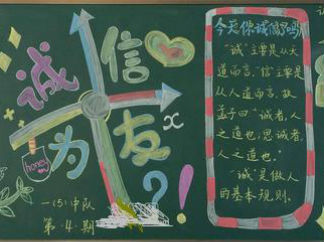 诚信
为友
x
honey
?!
一(5)中队
第4期
今天你诚信了吗
“诚”主要是从天
道而言,“信”主要是
从人道而言,故
孟子曰“诚者,天
之道也;思诚者,
人之道也。”
“诚”是做人
的基本规则。